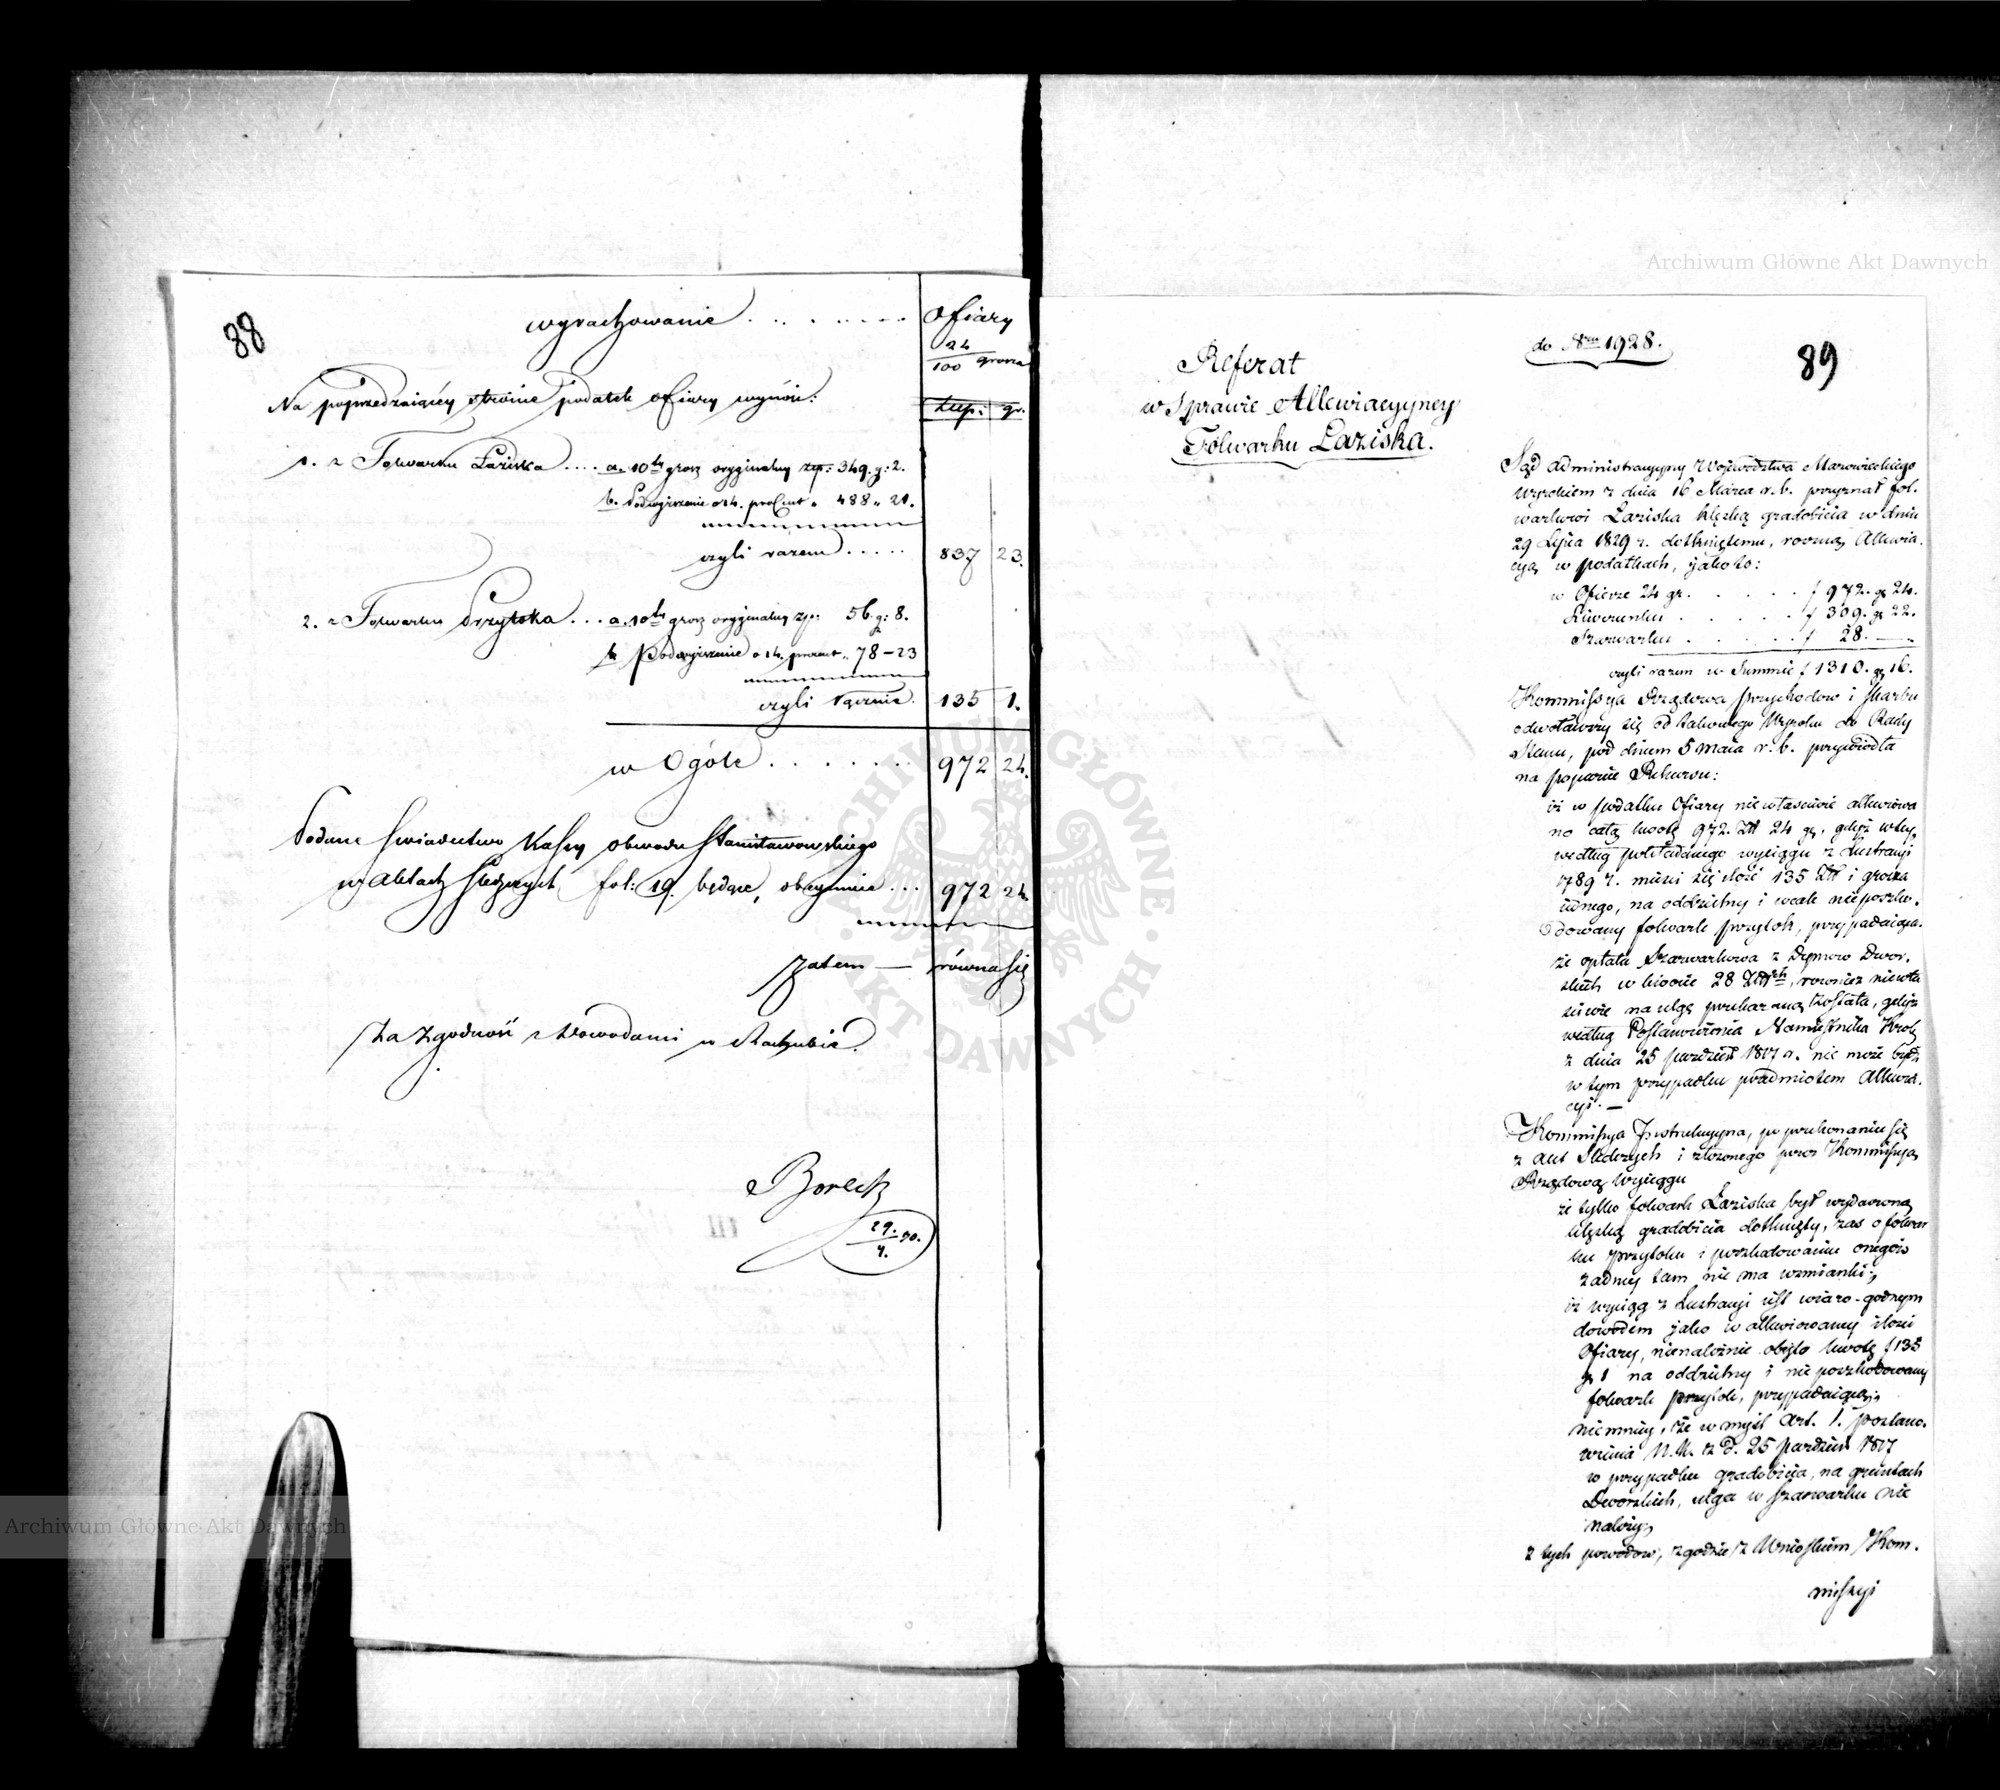 88
wyrachowanie . . . . . . .
Ofiary
24/100 grosza
złłp: gr.
Na poprzedzaiącey stronie podatek ofiary wynosi:
1. z Folwarku Łaziska .... a. 10ty grosz oryginalny złp: 349. g: 2.
b. Podwyższenie o 14. procent „ 488 „ 21.
czyli razem ..... 837 23.
2. z Folwarku Przytoka ... a. 10ty grosz oryginalny zp: 56. g: 8.
b. Podwyższenie o 14. procent „ 78 – 23
czyli łącznie. 135 1.
w Ogóle . . . . . . . . 972 24.
Podane świadectwo Kassy obwodu Stanisławowskiego
w aktach śledczych fol: 19. będące, obeymuie ... 972 24.
zatem — równa się
Za zgodność z dowodami w Rachubie.
Borecki
29/4. 30.
do Nro 1928.
89
Referat
w Sprawie Allewiacyyney
Folwarku Łaziska.
Sąd administracyyny Woiewództwa Mazowieckiego
Wyrokiem z dnia 16 Marca r. b. przyznał fol.
warkowi Łaziska klęską gradobicia w dniu
29 Lipca 1829 r. dotkniętemu, roczną Allewia.
cyą w podatkach, jako to:
w Ofierze 24 gr. . . . . . f 972. g 24.
Liwerunku . . . . . . f 309. g 22.
Szarwarku . . . . . . f 28. —
czyli razem w Summie f 1310. g 16.
Kommissya Rządowa Przychodów i Skarbu
odwoławszy się od takowego Wyroku do Rady
Stanu, pod dniem 5 Maia r. b. przywiodła
na poparcie Rekursu:
iż w podatku Ofiary niewłaściwie allewiowa
no całą kwotę 972. Złł 24 gr, gdyż w tey,
według pokładanego wyciągu z Lustracyi
1789 r. mieści się ilość 135 Złł i grosza
iednego, na oddzielny i wcale nieposzko.
dowany folwark Przytok, przypadaiąca.
że opłata Szarwarkowa z Dymow Dwor.
skich w kwocie 28 Złłch, rownież niewła
ściwie na ulgę przekazaną została, gdyż
według Postanowienia Namiestnika Krolę
z dnia 25 paździer 1817 r. nie może bydź
w tym przypadku przedmiotem Allewia.
cyi. —
Kommissya Instrukcyyna, po przekonaniu się
z akt Śledczych i złożonego przez Kommissyą
Rządową wyciągu
że tylko folwark Łaziska był wydarzoną
klęską gradobicia dotknięty, zaś o folwar
ku Przytoku i poszkodowaniu onegoż
żadney tam nie ma wzmianki;
iż wyciąg z Lustracyi iest wiaro-godnym
dowodem jako w allewiowaney ilości
Ofiary, nienależnie obięto kwotę f 135
g 1 na oddzielny i nie poszkodowany
folwark Przytok, przypadaiącą;
niemniey, że w myśl Art. 1. postano.
wienia N. K. z d. 25 paździer 1817
w przypadku gradobicia, na gruntach
Dworskich, ulga w Szarwarku nie
należy;
z tych powodow, zgodnie z Wnioskiem Kom.
missyi
Archiwum Główne Akt Dawnych
Archiwum Główne Akt Dawnych
ARCHIWUM GŁÓWNE · AKT DAWNYCH ·